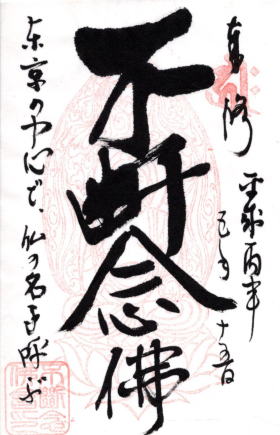 奉修
平成丙申
五月
十五日
不断念佛
東京の中心で、仏の名を呼ぶ